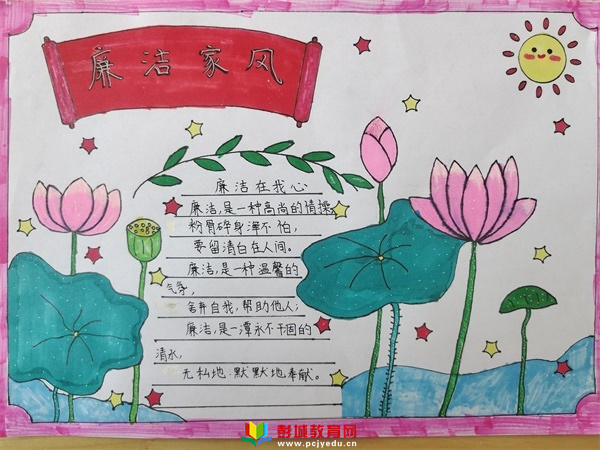 廉洁家风
廉洁在我心
廉洁,是一种高尚的情操
粉骨碎身浑不怕,
要留清白在人间。
廉洁,是一种温馨的
气氛,
舍弃自我,帮助他人;
廉洁,是一潭永不干固的
清水,
无私地.默默地奉献。
彭城教育网
www.pcjyedu.cn